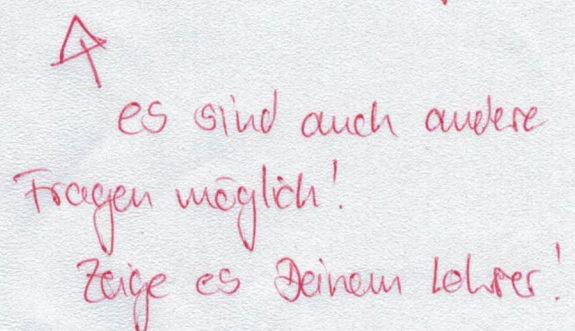 es sind auch andere
Fragen möglich!
Zeige es Deinem Lehrer!